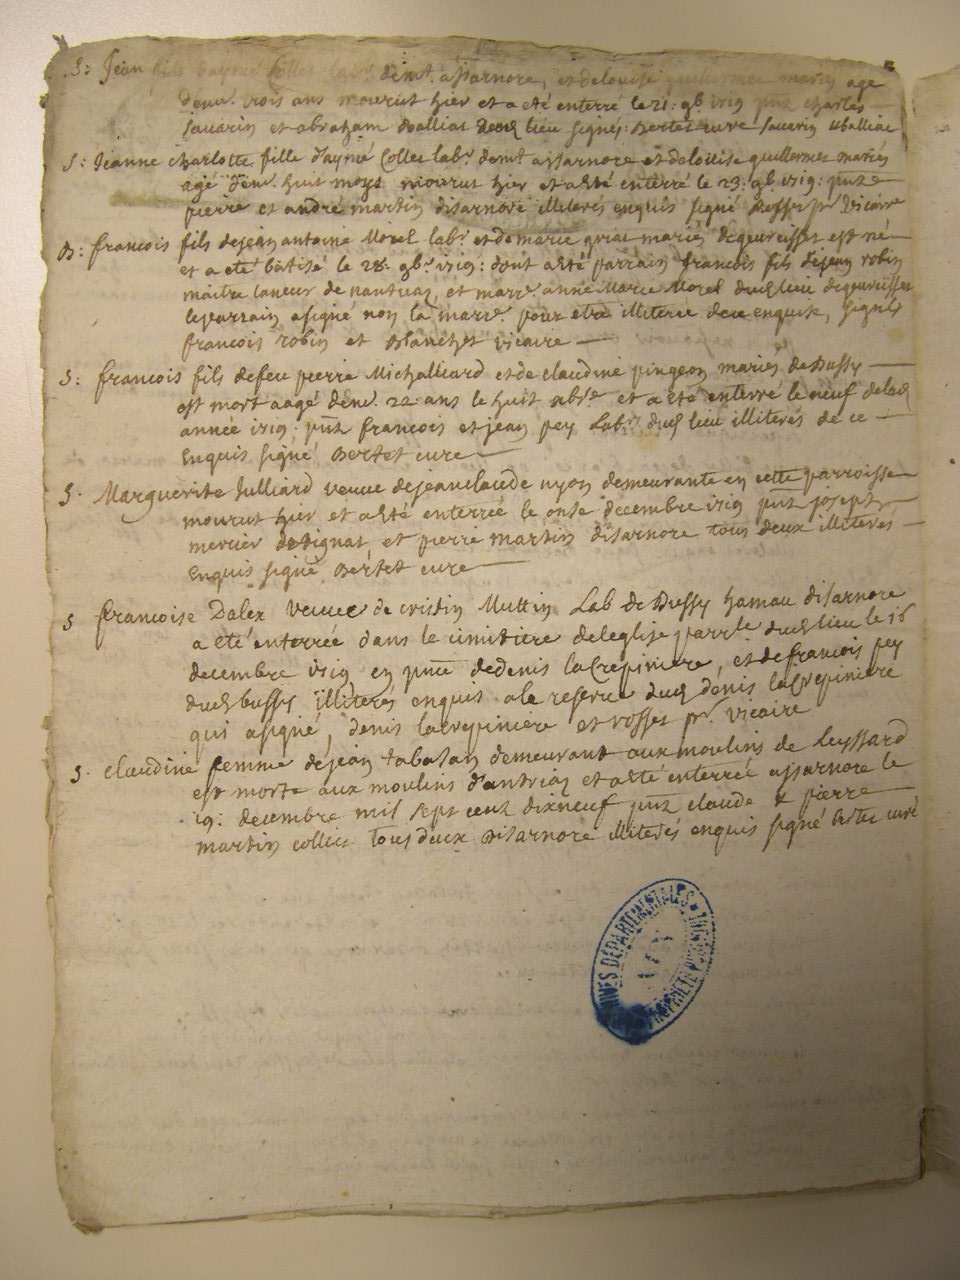 S: Jean fils d'aymé Collet lab.r dem.t a Isarnore, et de Louise guillermet mariés age
d'env. trois ans mourut hier et a eté enterré le 21: 9b 1719 pnt charles
Savarin et abraham Balliat dud lieu signés: Bertet cure Savarin Aballiat
S: Jeanne charlotte fille d'aymé Collet lab.r dem.t a Isarnore et de louise guillermet mariés
agé d'env. huit moys mourut hier et a eté enterré le 23: 9b 1719: pnt
pierre et andré martin d'isarnore illiterés enquis signé Rosset p.r Vicaire
B: francois fils de jean antoine Morel lab.r et de marie mariés de geureisset est né
et a eté bâtisé le 28: 9b.r 1719: dont a eté parrain francois fils de jean robin
maitre taneur de nantua, et marr.e anne Marie Morel dud lieu de geurisset
le parrain a signé non la marr.e pour etre illiterée de ce enquise, signés
francois robin et Blanchet vicaire
S: francois fils de feu pierre Michalliard et de claudine pingeon mariés de Bussy
est mort aagé d'env. 22 ans le huit xbr.e et a eté enterré le neuf de lad
année 1719: pnt francois et jean pey Lab.rs dud lieu illiterés de ce
Enquis signé Bertet cure
S. Marguerite Julliard veuve de jean claude nyon demeurante en cette parroisse
mourut hier et a eté enterrée le onse decembre 1719 pnt joseph
mercier de Tignat, et pierre martin d'isarnore tous deux illiterés
Enquis signé Bertet cure
S francoise Dalex veuve de cristin Muttin Lab de Bussy hamau d'isarnore
a eté enterrée dans le cimitiere de leglise parr.le dud lieu le 16
decembre 1719 en pnce de denis lacrepiniere, et de francois pey
dud bussy illiterés enquis a la reserve dud dénis lacrepiniere
qui a signé, denis lacrepiniere et rosset p.r vicaire
S. claudine femme de jean tabatan demeurant aux moulins de Leyssard
est morte aux moulins d'antriat et a eté enterrée a Isarnore le
19: decembre mil sept cent dixneuf pnt claude et pierre
martin collict tous deux d'isarnore illiterés enquis signé Bertet curé
ARCHIVES DÉPARTEMENTALES
AIN
PROPRIÉTÉ PUBLIQUE